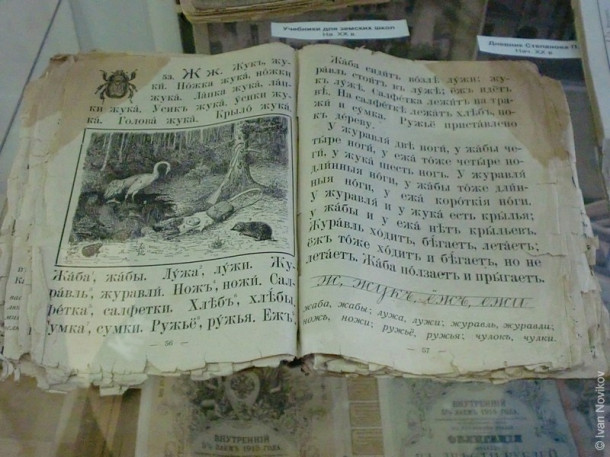 Учебники для земских школ
Нач. XX в.
Дневник Степанова П.
Нач. XX в.
за. Ж ж. Жукъ, жу-
ки. Ножка жука, ножки
жука. Лапка жука, лап-
ки жука. Усикъ жука, усики жу-
ка. Голова жука. Крыло жука,
Жаба, жабы. Лужа, лужи. Жу-
равль, журавли. Ножъ, ножи. Сал-
фетка, салфетки. Хлѣбъ, хлѣбы.
Сумка, сумки. Ружьё, ружья. Ёжъ,
— 56 —
Жаба сидитъ возлѣ лужи; жу-
равль стоитъ въ лужѣ; ёжъ идётъ
къ лужѣ. Салфетка лежитъ на тра-
вѣ. На салфеткѣ лежатъ хлѣбъ, но-
жи и сумка. Ружьё приставлено
къ дереву.
У журавля двѣ ноги, у жабы че-
тыре ноги, у ежа тоже четыре но-
ги, у жука шесть ногъ. У журавля
длинныя ноги, у жабы тоже длин-
ныя ноги, у ежа короткія ноги.
У журавля и у жука есть крылья;
у жабы и у ежа нѣтъ крыльевъ.
Журавль ходитъ, бѣгаетъ, летаетъ;
ёжъ тоже ходитъ и бѣгаетъ, но не
летаетъ. Жаба ползаетъ и прыгаетъ.
ж, жукъ, ёжъ, ежи
жаба, жабы; лужа, лужи; журавль, журавли;
ножъ, ножи; ружьё, ружья; чулокъ, чулки.
— 57 —
ВНУТРЕННІЙ
5% ЗАЕМЪ 1905 ГОДА.
ВНУТРЕННІЙ
5% ЗАЕМЪ 1905 ГОДА.
© Ivan Novikov